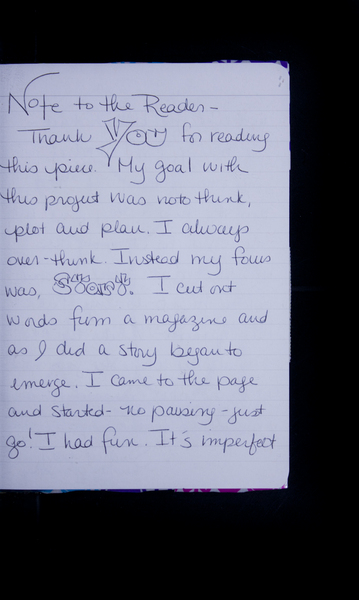 Note to the Reader-
Thank YOU for reading
this piece. My goal with
this project was not to think,
plot and plan. I always
over-think. Instead my focus
was, STORY. I cut out
words from a magazine and
as I did a story began to
emerge. I came to the page
and started- no pausing- just
go! I had fun. It's imperfect